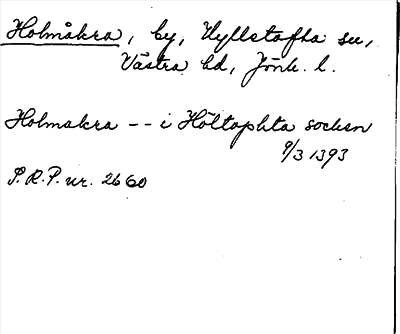 Holmåkra, by, Hyllstofta sn,
Västra hd, Jönk. l.
Holmakra -- i Höltophta sochen
9/3 1393
S.R.P. nr. 2660